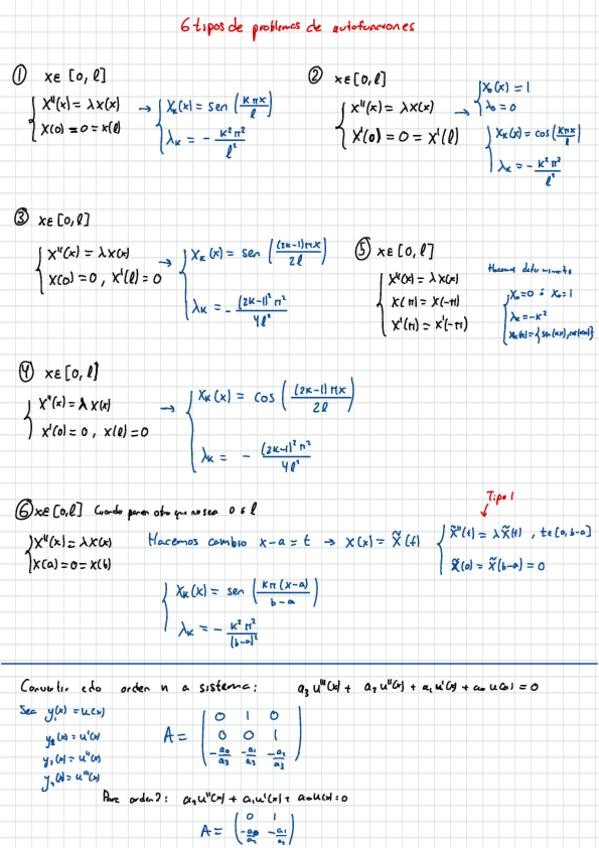 6 tipos de problemas de autofunciones
① x∈[0,ℓ]
X''(x) = λX(x)
X(0) = 0 = X(ℓ)
→ Xₖ(x) = sen (kπx/ℓ)
λₖ = - k²π²/ℓ²
② x∈[0,ℓ]
X''(x) = λX(x)
X'(0) = 0 = X'(ℓ)
→ X₀(x) = 1
λ₀ = 0
Xₖ(x) = cos (kπx/ℓ)
λₖ = - k²π²/ℓ²
③ x∈[0,ℓ]
X''(x) = λX(x)
X(0) = 0, X'(ℓ) = 0
→ Xₖ(x) = sen ((2k-1)πx/2ℓ)
λₖ = - (2k-1)²π²/4ℓ²
⑤ x∈[0,ℓ]
X''(x) = λX(x)
X(π) = X(-π)
X'(π) = X'(-π)
Hacemos determinante
X₀=0 ó X₀=1
λₖ = -k²
④ x∈[0,ℓ]
X''(x) = λX(x)
X'(0) = 0, X(ℓ) = 0
→ Xₖ(x) = cos ((2k-1)πx/2ℓ)
λₖ = - (2k-1)²π²/4ℓ²
⑥ x∈[0,ℓ] Cuando ponen otro que no sea 0 ó ℓ
X''(x) = λX(x)
X(a) = 0 = X(b)
Hacemos cambio x-a = t → X(x) = X̃(t)
Tipo 1
X̃''(t) = λX̃(t), t∈[0,b-a]
X̃(0) = X̃(b-a) = 0
Xₖ(x) = sen (kπ(x-a)/b-a)
λₖ = - k²π²/(b-a)²
Convertir edo orden n a sistema: a₃u'''(x) + a₂u''(x) + a₁u'(x) + a₀u(x) = 0
Sea y₁(x) = u(x)
y₂(x) = u'(x)
y₃(x) = u''(x)
y₄(x) = u'''(x)
A = ( 0 1 0
0 0 1
-a₀/a₃ -a₁/a₃ -a₂/a₃ )
Para orden 2: a₂u''(x) + a₁u'(x) + a₀u(x) = 0
A = ( 0 1
-a₀/a₂ -a₁/a₂ )